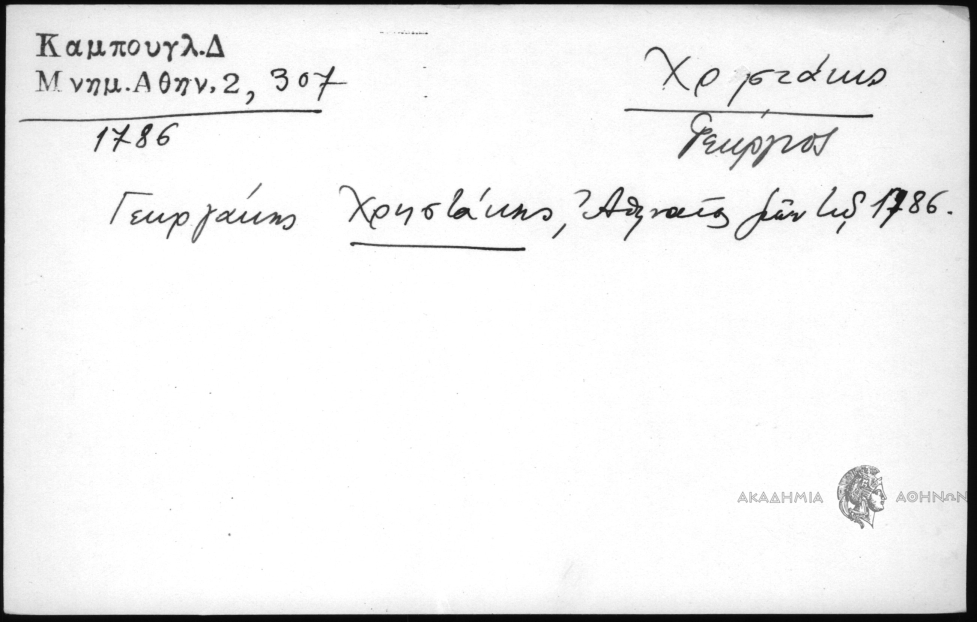 Καμπουγλ.Δ
Μνημ.Αθην.2, 307
1786
Χρηστάκης
Γεώργιος
Γεωργάκης Χρηστάκης, Ἀθηναῖος ζῶν τῷ 1786.
ΑΚΑΔΗΜΙΑ ΑΘΗΝΩΝ